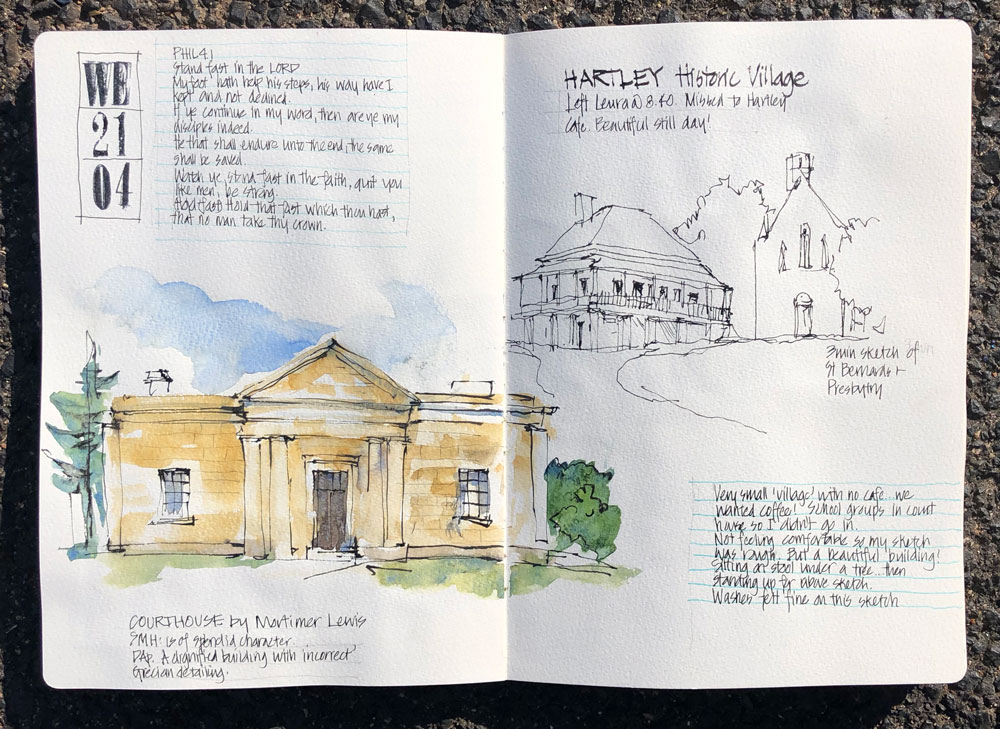 WE
21
04
PHIL 4:1
Stand fast in the LORD
My foot hath help his steps, his way have I
kept and not declined.
If ye continue in my word, then are ye my
disciples indeed.
He that shall endure unto the end, the same
shall be saved.
Watch ye, stand fast in the faith, quit you
like men, be strong.
Hold fast Hold that fast which thou hast,
that no man take thy crown.
COURTHOUSE by Mortimer Lewis
SMH: is of splendid character.
DAp. A dignified building with 'incorrect'
Grecian detailing.
HARTLEY Historic Village
Left Leura @ 8.40. Missed to Hartley
Cafe. Beautiful still day!
3min sketch of
St Bernards +
Presbytry
Very small 'village' with no cafe.. we
wanted coffee! School groups in court
house so I didn't go in.
Not feeling comfortable so my sketch
was rough. But a beautiful building!
Sitting on stool under a tree.. then
standing up for above sketch.
Washes felt fine on this sketch